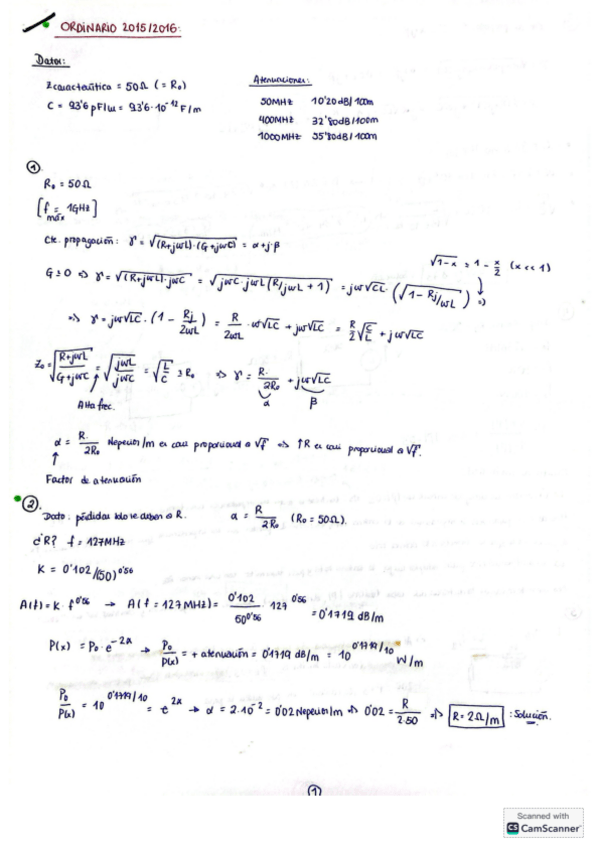 ORDINARIO 2015/2016:
Datos:
Zcaracterística = 50Ω (= R₀)
C = 93'6 pF/m = 93'6·10⁻¹² F/m
Atenuaciones:
50MHz 10'20dB/100m
400MHz 32'80dB/100m
1000MHz 35'80dB/100m
①.
R₀ = 50Ω
[f máx = 1GHz]
Cte. propagación: γ = √(R+jωL)·(G+jωC) = α+j·β
√1-x ≃ 1 - x/2 (x<<1)
G≃0 ⇒ γ = √(R+jωL)·jωC = √jωC·jωL(R/jωL + 1) = jω√CL·(√1 - Rj/ωL) ⇒
⇒ γ = jω√LC·(1 - Rj/2ωL) = R/2ωL · ω√LC + jω√LC = R/2 √C/L + jω√LC
Z₀ = √R+jωL/G+jωC = √jωL/jωC = √L/C ≃ R₀ ⇒ γ = R/2R₀ + jω√LC
α β
Alta frec.
α = R/2R₀ Neperios/m es casi proporcional a √f ⇒ ↑R es casi proporcional a √f.
Factor de atenuación
②.
Dato: pérdidas solo se deben a R. α = R/2R₀ (R₀ = 50Ω).
¿R? f = 127MHz
K = 0'102/(50)^0'56
A(f) = K·f^0'56 → A(f = 127MHz) = 0'102/50^0'56 · 127^0'56 = 0'1719 dB/m
P(x) = P₀·e^-2α → P₀/P(x) = + atenuación = 0'1719 dB/m = 10^0'1719/10 W/m
P₀/P(x) = 10^0'1719/10 = e^2α → α = 2·10⁻² = 0'02 Neperios/m ⇒ 0'02 = R/2·50 ⇒ R = 2Ω/m : Solución.
①
Scanned with
CS CamScanner